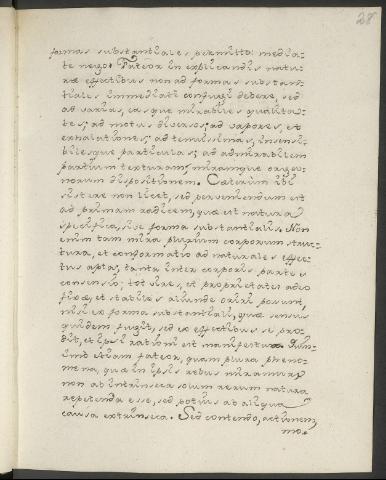 28
formas substantiales permitto: media-
te nego. Fateor in explicandis natu-
ræ effectibus non ad formas substan-
tiales immediatè confugi debere, sed
ad varias, easque mirabiles qualita-
tes; ad motus diversos; ad vapores, et
exhalationes; ad tenuissimas, insensi-
bilesque particulas; ad admirabilem
partium texturam, miramque orga-
norum dispositionem. Caeterum ibi
sistere non licet, sed perveniendum est
ad primam radicem, quae est natura
specifica, sive forma substantialis. Non
enim tam mira plurium corporum struc-
tura, et conformatio ad naturales effec-
tus apta, tanta inter corporis partes
consensio; tot vires, et proprietates adeo
fixæ, et stabiles aliunde oriri possunt,
nisi ex forma substantiali, quæ sensus
quidem fugit, sed ex effectibus se pro-
dit, et ipsi rationi est manifesta.
imò etiam fateor, quam plura pheno-
mena, quæ in ipsis rebus miramur,
non ab intrinseca solum rerum natura
repetenda esse, sed potius ab aliqua
causa extrinseca. Sed contendo, actionem,
mo-